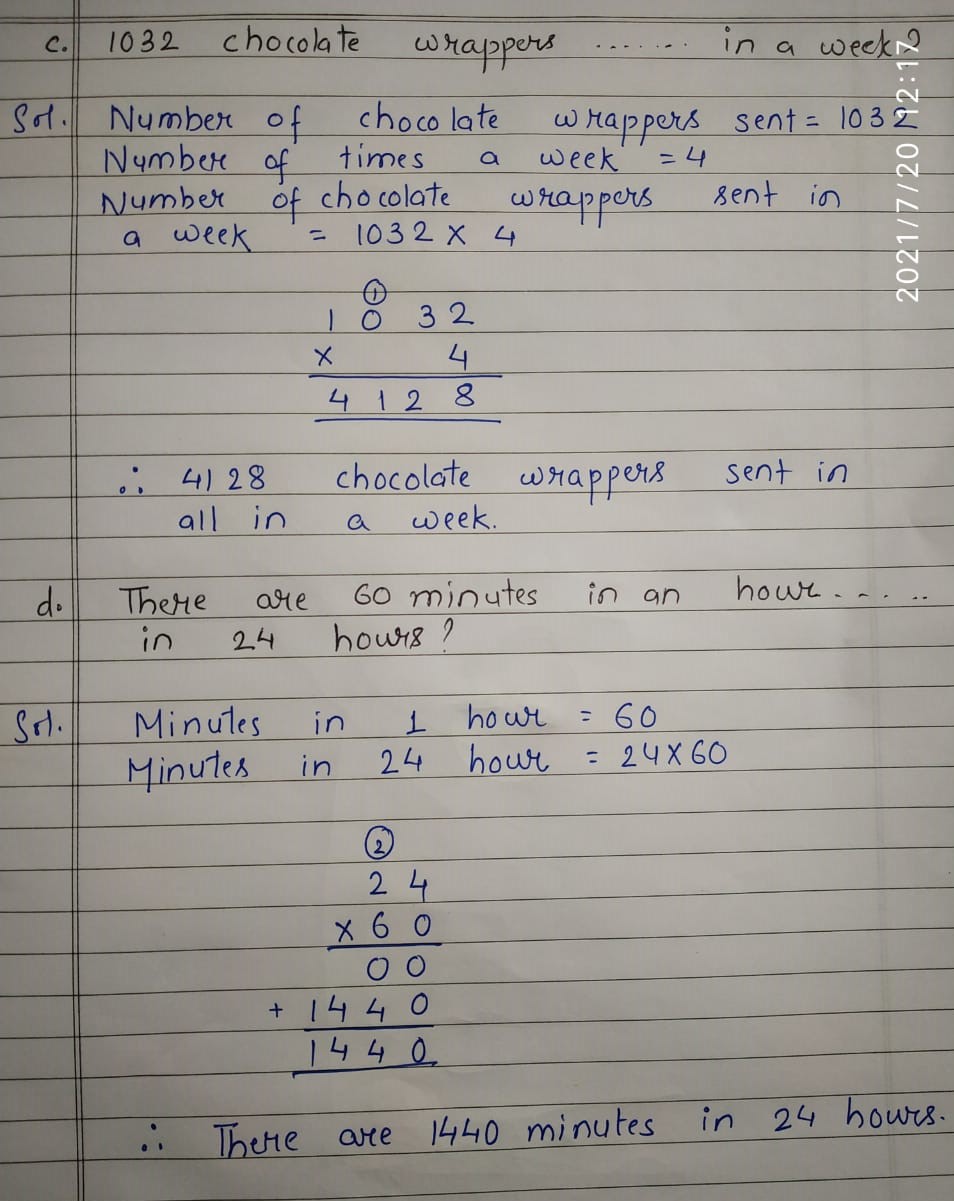 c. 1032 chocolate wrappers ....... in a week?
Sol. Number of chocolate wrappers sent = 1032
Number of times a week = 4
Number of chocolate wrappers sent in
a week = 1032 × 4
1
1 0 3 2
× 4
4 1 2 8
∴ 4128 chocolate wrappers sent in
all in a week.
d. There are 60 minutes in an hour......
in 24 hours?
Sol. Minutes in 1 hour = 60
Minutes in 24 hour = 24×60
2
2 4
× 6 0
0 0
+ 1 4 4 0
1 4 4 0
∴ There are 1440 minutes in 24 hours.
2021/7/20 12:17